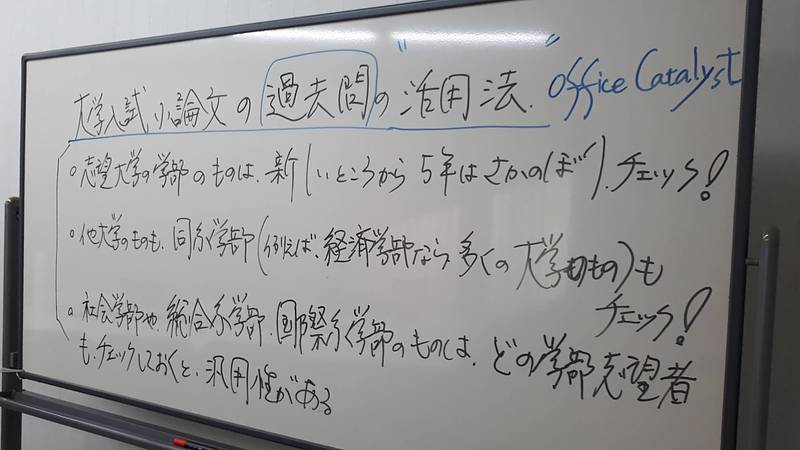 大学入試小論文の過去問の"活用法"
Office Catalyst
○志望大学の学部のものは、新しいところから5年はさかのぼり、チェック!
○他大学のものも、同系学部(例えば、経済学部なら多くの大学のもの)も
チェック!
○社会学部や、総合系学部、国際系学部のものは、どの学部志望者
も、チェックしておくと、汎用性がある